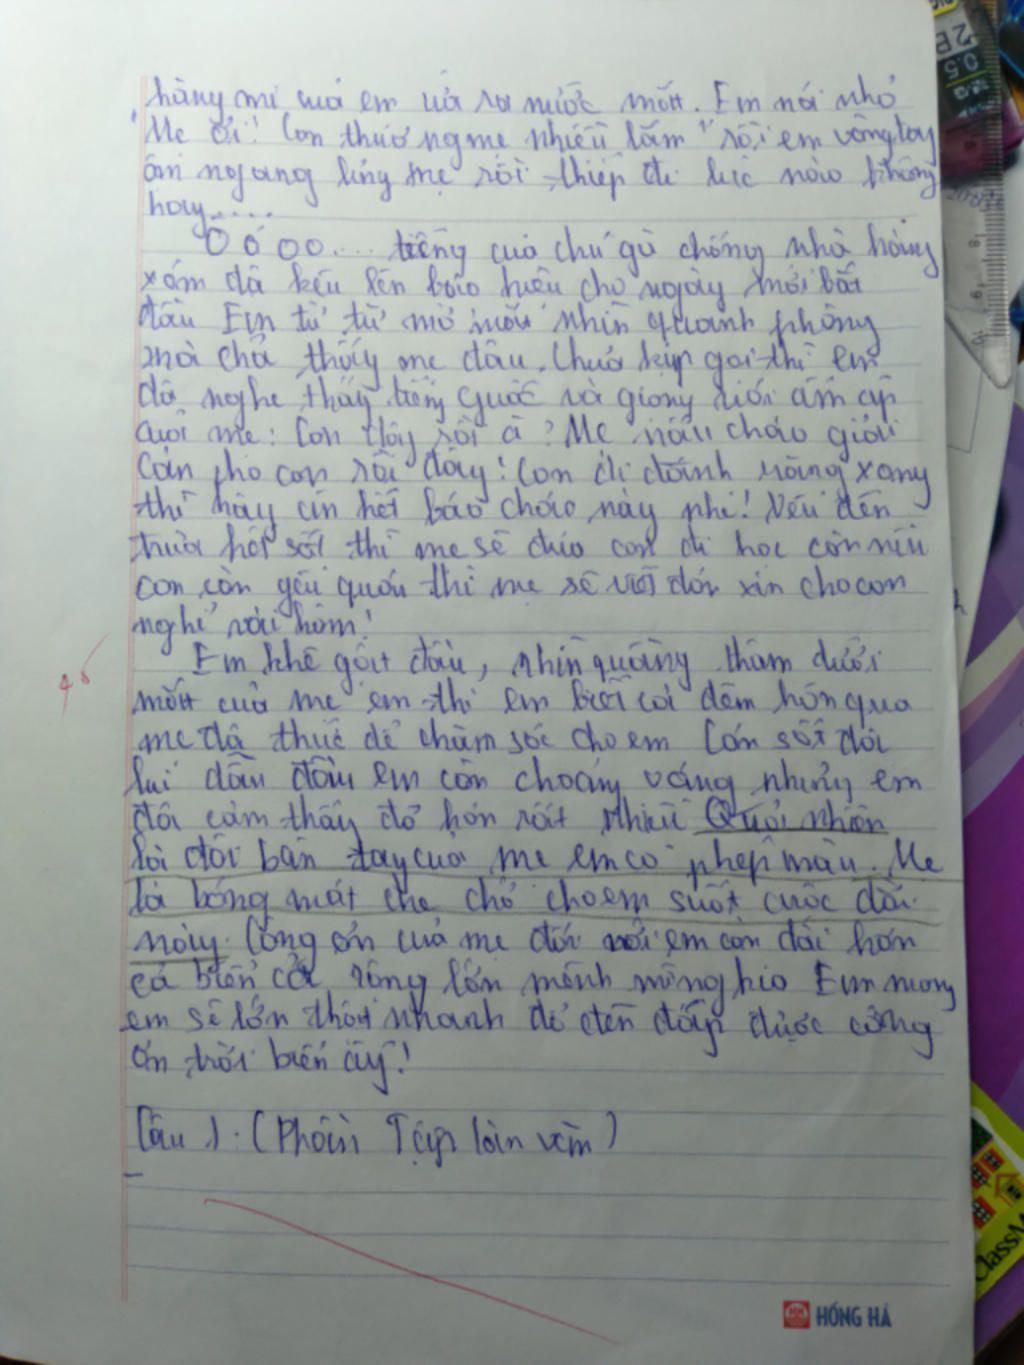 hàng mi của em ứa ra nước mắt. Em nói nhỏ
Mẹ ơi! Con thương mẹ nhiều lắm" rồi em vòng tay
ôm ngang lưng mẹ rồi thiếp đi lúc nào không
hay.....
Ò ó oo.... tiếng của chú gà chống nhà hàng
xóm đã kêu lên báo hiệu cho ngày mới bắt
đầu Em từ từ mở mắt nhìn quanh phòng
mà chả thấy mẹ đâu. Chưa kịp gọi thì em
đã nghe thấy tiếng guốc và giọng nói ấm áp
của mẹ: Con dậy rồi à? Mẹ nấu cháo giải
cảm cho con rồi đấy! Con đi đánh răng xong
thì hãy ăn hết bát cháo này nhé! Nếu đến
trưa hết sốt thì mẹ sẽ đưa con đi học còn nếu
con còn yếu quá thì mẹ sẽ viết đơn xin cho con
nghỉ vài hôm!
Em khẽ gật đầu, nhìn quầng thâm dưới
mắt của mẹ em thì em biết cả đêm hôm qua
mẹ đã thức để chăm sóc cho em Cơn sốt đã
lui dần đầu em còn choáng váng nhưng em
đã cảm thấy đỡ hơn rất nhiều Quả nhiên
là đôi bàn tay của mẹ em có phép màu. Mẹ
là bóng mát che chở cho em suốt cuộc đời
này. Công ơn của mẹ đối với em còn dài hơn
cả biển cả rộng lớn mênh mông kia Em mong
em sẽ lớn thật nhanh để đền đáp được công
ơn trời biển ấy!
Câu 1: (Phần Tập làm văn)
HỒNG HÀ
2B
0.5
ClassM